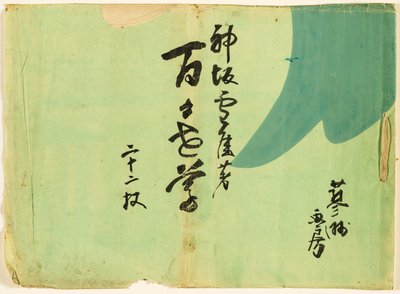 画房
神坂雪佳著
百々世草
二十二枚